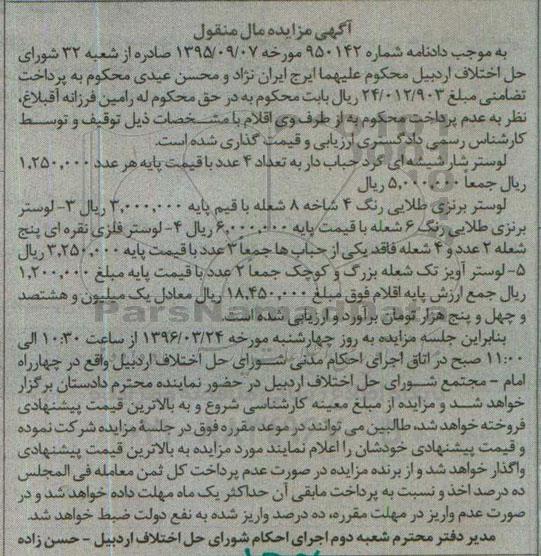 آگهی مزایده مال منقول
به موجب دادنامه شماره ۹۵۰۱۴۲ مورخه ۱۳۹۵/۰۹/۰۷ صادره از شعبه ۳۲ شورای
حل اختلاف اردبیل محکوم علیهما ایرج ایران نژاد و محسن عیدی محکوم به پرداخت
تضامنی مبلغ ۲۴/۰۱۲/۹۰۳ ریال بابت محکوم به در حق محکوم له رامین فرزانه آقبلاغ،
نظر به عدم پرداخت محکوم به از طرف وی اقلام با مشخصات ذیل توقیف و توسط
کارشناس رسمی دادگستری ارزیابی و قیمت گذاری شده است.
لوستر پشار شیشه ای گرد حباب دار به تعداد ۴ عدد با قیمت پایه هر عدد ۱,۲۵۰,۰۰۰
ریال جمعا ۵,۰۰۰,۰۰۰ ریال
لوستر برنزی طلایی رنگ ۴ شاخه ۸ شعله با قیم پایه ۳,۰۰۰,۰۰۰ ریال ۳- لوستر
برنزی طلایی رنگ ۶ شعله با قیمت پایه ۶,۰۰۰,۰۰۰ ریال ۴- لوستر فلزی نقره ای پنج
شعله ۲ عدد و ۴ شعله فاقد یکی از حباب ها جمعا ۳ عدد با قیمت پایه ۳,۲۵۰,۰۰۰ ریال
۵- لوستر آویز تک شعله بزرگ و کوچک جمعا ۲ عدد با قیمت پایه مبلغ ۱,۲۰۰,۰۰۰
ریال جمع ارزش پایه اقلام فوق مبلغ ۱۸,۴۵۰,۰۰۰ ریال معادل یک میلیون و هشتصد
و چهل و پنج هزار تومان برآورد و ارزیابی شده است.
بنابراین جلسه مزایده به روز چهارشنبه مورخه ۱۳۹۶/۰۳/۲۴ از ساعت ۱۰:۳۰ الی
۱۱:۰۰ صبح در اتاق اجرای احکام مدنی شورای حل اختلاف اردبیل واقع در چهارراه
امام - مجتمع شورای حل اختلاف اردبیل در حضور نماینده محترم دادستان برگزار
خواهد شد و مزایده از مبلغ معینه کارشناسی شروع و به بالاترین قیمت پیشنهادی
فروخته خواهد شد، طالبین می توانند در موعد مقرره فوق در جلسۀ مزایده شرکت نموده
و قیمت پیشنهادی خودشان را اعلام نمایند مورد مزایده به بالاترین قیمت پیشنهادی
واگذار خواهد شد و از برنده مزایده در صورت عدم پرداخت کل ثمن معامله فی المجلس
ده درصد اخذ و نسبت به پرداخت مابقی آن حداکثر یک ماه مهلت داده خواهد شد و در
صورت عدم واریز در مهلت مقرره، ده درصد واریز شده به نفع دولت ضبط خواهد شد.
مدیر دفتر محترم شعبه دوم اجرای احکام شورای حل اختلاف اردبیل - حسن زاده